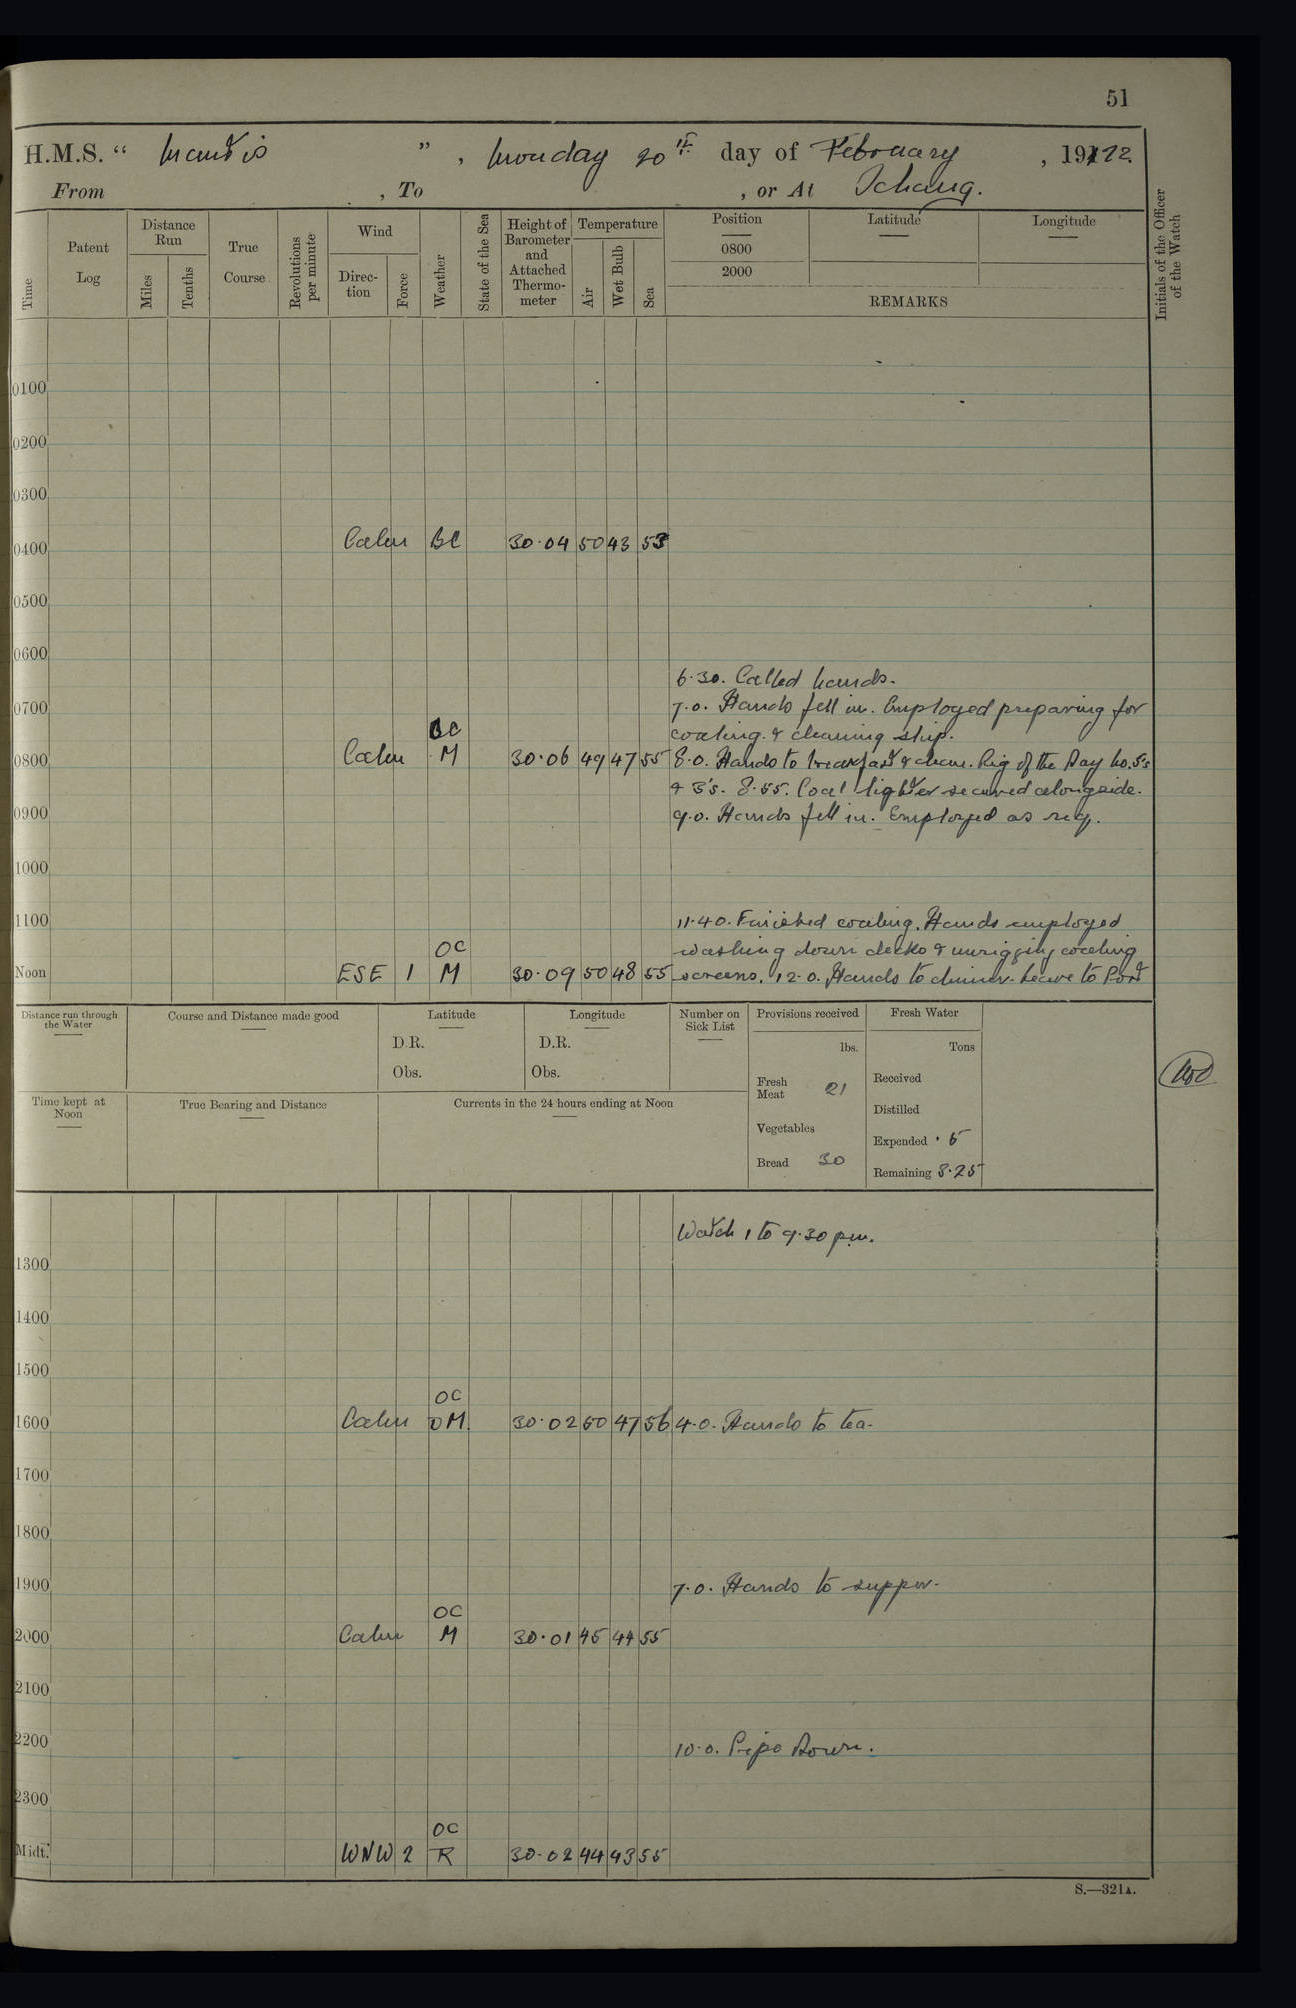 51
H.M.S. “ Mantis ”, Monday 20th day of February, 1922.
From , To , or At Ichang.
Time
Patent Log
Distance Run
Miles
Tenths
True Course
Revolutions per minute
Wind
Direc-tion
Force
Weather
State of the Sea
Height of Barometer and Attached Thermo-meter
Temperature
Air
Wet Bulb
Sea
Position
0800
2000
Latitude
Longitude
REMARKS
Initials of the Officer of the Watch
0100
0200
0300
0400 Calm BC 30·04 50 43 53
0500
0600
6·30. Called hands.
0700 7·0. Hands fell in. Employed preparing for
BC coaling & cleaning ship.
0800 Calm M 30·06 49 47 55 8·0. Hands to breakfast & clean. Rig of the Day No. 5's
& 3's. 8·55. Coal lighter secured alongside.
0900 9·0. Hands fell in. Employed as req.
1000
1100 11·40. Finished coaling. Hands employed
OC washing down decks & unrigging coaling
Noon ESE 1 M 30·09 50 48 55 screens. 12·0. Hands to dinner. Leave to Port
Distance run through the Water
Course and Distance made good
Latitude
D.R.
Obs.
Longitude
D.R.
Obs.
Number on Sick List
Provisions received
lbs.
Fresh Meat 21
Vegetables
Bread 30
Fresh Water
Tons
Received
Distilled
Expended ·5
Remaining 8·25
Time kept at Noon
True Bearing and Distance
Currents in the 24 hours ending at Noon
Watch 1 to 9·30 p.m.
1300
1400
1500
OC
1600 Calm DM. 30·02 50 47 56 4·0. Hands to tea.
1700
1800
1900 7·0. Hands to supper.
OC
2000 Calm M 30·01 45 44 55
2100
2200 10·0. Pipe Down.
2300
OC
Midt. WNW 2 R 30·02 44 43 55
S.—321A.